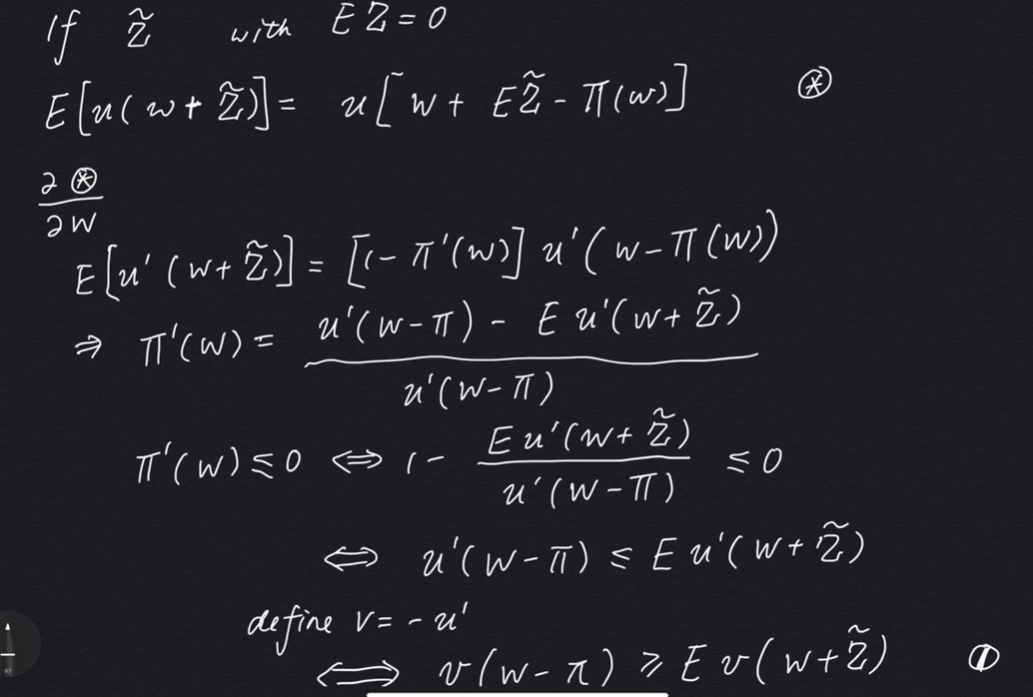 If Z̃ with EZ = 0
E[u(w + Z̃)] = u[w + EZ̃ - π(w)] ⊛
∂⊛/∂w
E[u'(w + Z̃)] = [1 - π'(w)] u'(w - π(w))
⇒ π'(w) = (u'(w - π) - E u'(w + Z̃)) / u'(w - π)
π'(w) ≤ 0 ⇔ 1 - E u'(w + Z̃) / u'(w - π) ≤ 0
⇔ u'(w - π) ≤ E u'(w + Z̃)
define v = - u'
⇔ v(w - π) ≥ E v(w + Z̃) ①